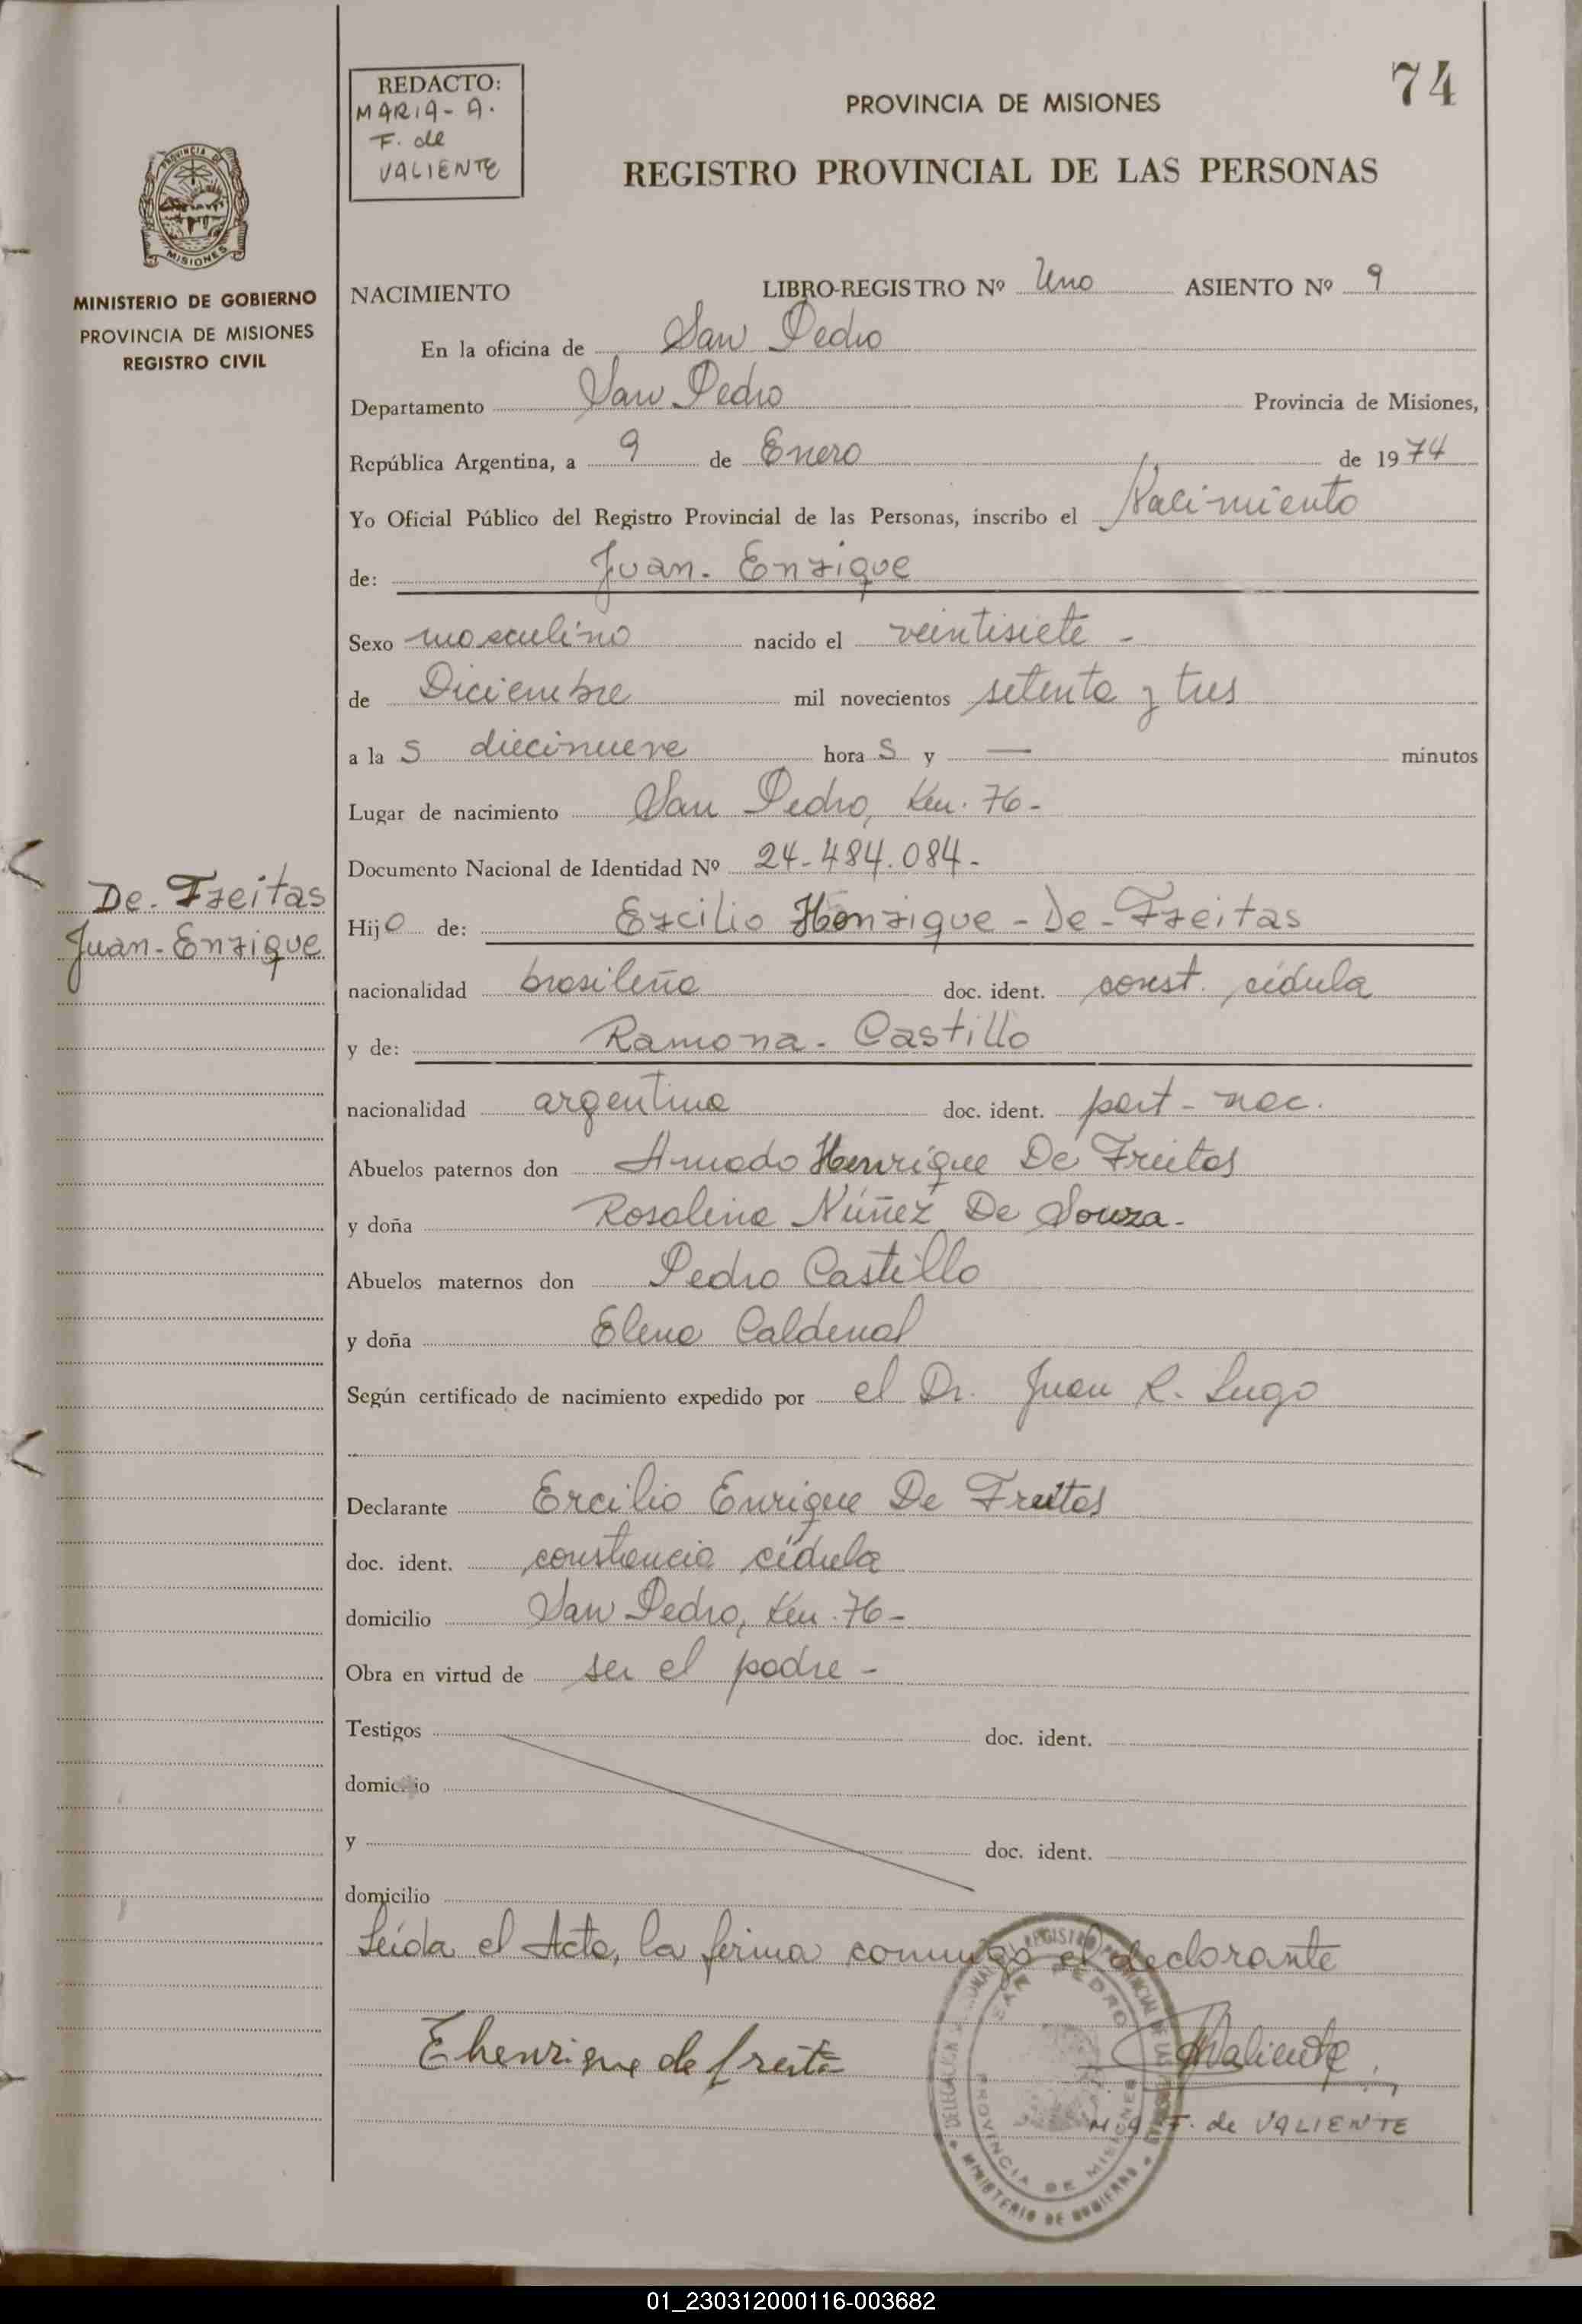 74
REDACTO:
MARIA-A.
F. de
VALIENTE
PROVINCIA DE MISIONES
REGISTRO PROVINCIAL DE LAS PERSONAS
PROVINCIA DE
MISIONES
MINISTERIO DE GOBIERNO
PROVINCIA DE MISIONES
REGISTRO CIVIL
NACIMIENTO LIBRO-REGISTRO Nº Uno ASIENTO Nº 9
En la oficina de San Pedro
Departamento San Pedro Provincia de Misiones,
República Argentina, a 9 de Enero de 1974
Yo Oficial Público del Registro Provincial de las Personas, inscribo el Nacimiento
de: Juan. Enrique
Sexo masculino nacido el veintisiete -
de Diciembre mil novecientos setenta y tres
a la s diecinueve hora s y — minutos
Lugar de nacimiento San Pedro, Km. 76-
Documento Nacional de Identidad Nº 24-484.084-
De. Freitas
Juan-Enrique
Hijo de: Ercilio Henrique-De-Freitas
nacionalidad brasileña doc. ident. const. cédula
y de: Ramona-Castillo
nacionalidad argentina doc. ident. part-nac.
Abuelos paternos don Amado Henrique De Freitas
y doña Rosalina Núñez De Souza-
Abuelos maternos don Pedro Castillo
y doña Elena Caldenal
Según certificado de nacimiento expedido por el Dr. Juan R. Lugo
Declarante Ercilio Enrique De Freitas
doc. ident. constancia cédula
domicilio San Pedro, Km. 76-
Obra en virtud de ser el padre-
Testigos doc. ident.
domicilio
y doc. ident.
domicilio
Leída el Acta, la firma conmigo el declarante
Ehenrique de freita
Valiente
M. A. F. de VALIENTE
SAN PEDRO
PROVINCIA DE MISIONES
MINISTERIO DE GOBIERNO
01_230312000116-003682